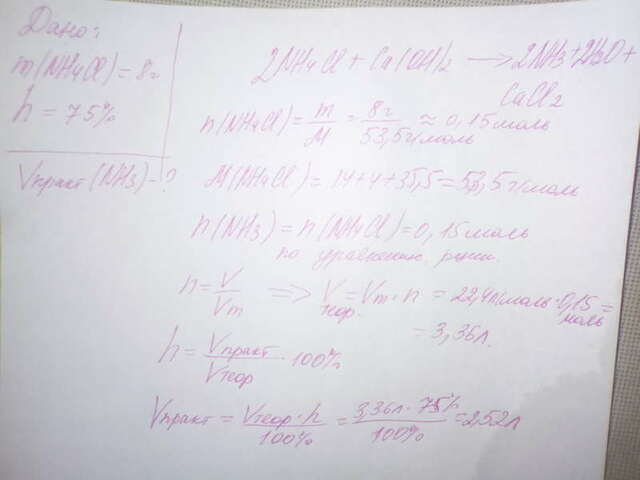 Дано:
m(NH4Cl) = 8г
h = 75%
Vпракт(NH3) - ?
2NH4Cl + Ca(OH)2 → 2NH3 + 2H2O +
CaCl2
n(NH4Cl) = m/M = 8г/53,5г/моль ≈ 0,15моль
M(NH4Cl) = 14+4+35,5 = 53,5г/моль
n(NH3) = n(NH4Cl) = 0,15моль
по уравнению
n = V/Vm => Vтеор. = Vm · n = 22,4л/моль · 0,15 моль =
= 3,36л.
h = Vпракт/Vтеор · 100%
Vпракт = Vтеор · h/100% = 3,36л · 75%/100% = 2,52л